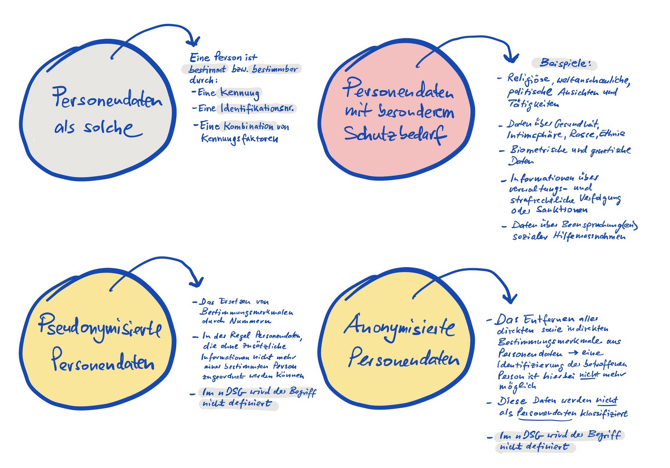 Personendaten
als solche
Eine Person ist
bestimmt bzw. bestimmbar
durch:
- Eine Kennung
- Eine Identifikationsnr.
- Eine Kombination von
Kennungsfaktoren
Personendaten
mit besonderem
Schutzbedarf
Beispiele:
- Religiöse, weltanschauliche,
politische Ansichten und
Tätigkeiten
- Daten über Gesundheit,
Intimsphäre, Rasse, Ethnie
- Biometrische und genetische
Daten
- Informationen über
verwaltungs- und
strafrechtliche Verfolgung
oder Sanktionen
- Daten über Beanspruchung(en)
sozialer Hilfemassnahmen
Pseudonymisierte
Personendaten
- Das Ersetzen von
Bestimmungsmerkmalen
durch Nummern
- In der Regel Personendaten,
die ohne zusätzliche
Informationen nicht mehr
einer bestimmten Person
zugeordnet werden können
- Im nDSG wird der Begriff
nicht definiert
Anonymisierte
Personendaten
- Das Entfernen aller
direkten sowie indirekten
Bestimmungsmerkmale aus
Personendaten → eine
Identifizierung der betroffenen
Person ist hierbei nicht mehr
möglich
- Diese Daten werden nicht
als Personendaten klassifiziert
- Im nDSG wird der Begriff
nicht definiert